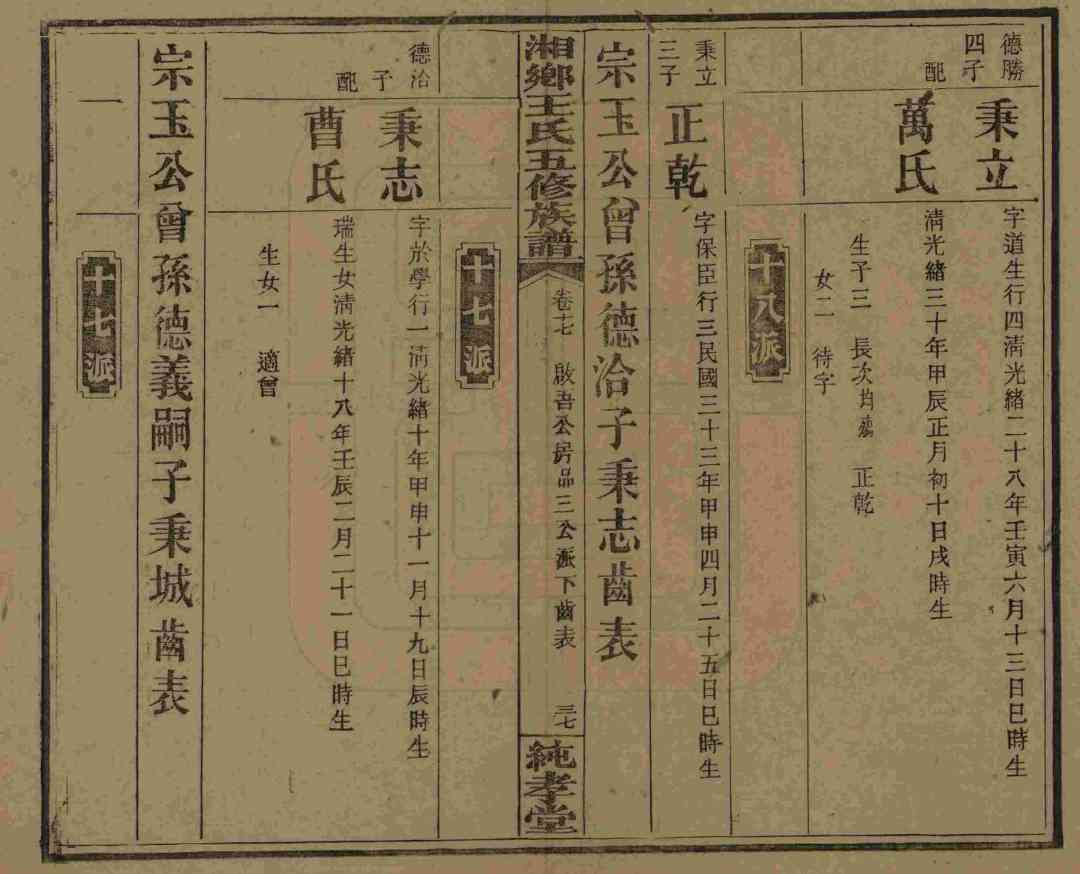 德勝
四子
秉立
字道生行四清光緒二十八年壬寅六月十三日巳時生
配
萬氏
清光緒三十年甲辰正月初十日戌時生
生子三 長次均殤 正乾
女二 待字
十八派
秉立
三子
正乾
字保臣行三民國三十三年甲申四月二十五日巳時生
宗玉公曾孫德治子秉志齒表
湘鄉王氏五修族譜
卷十七 啟吾公房品三公派下齒表 三七
純孝堂
十七派
德治
子
秉志
字於學行一清光緒十年甲申十一月十九日辰時生
配
曹氏
瑞生女清光緒十八年壬辰二月二十一日巳時生
生女一 適曾
宗玉公曾孫德義嗣子秉城齒表
十七派